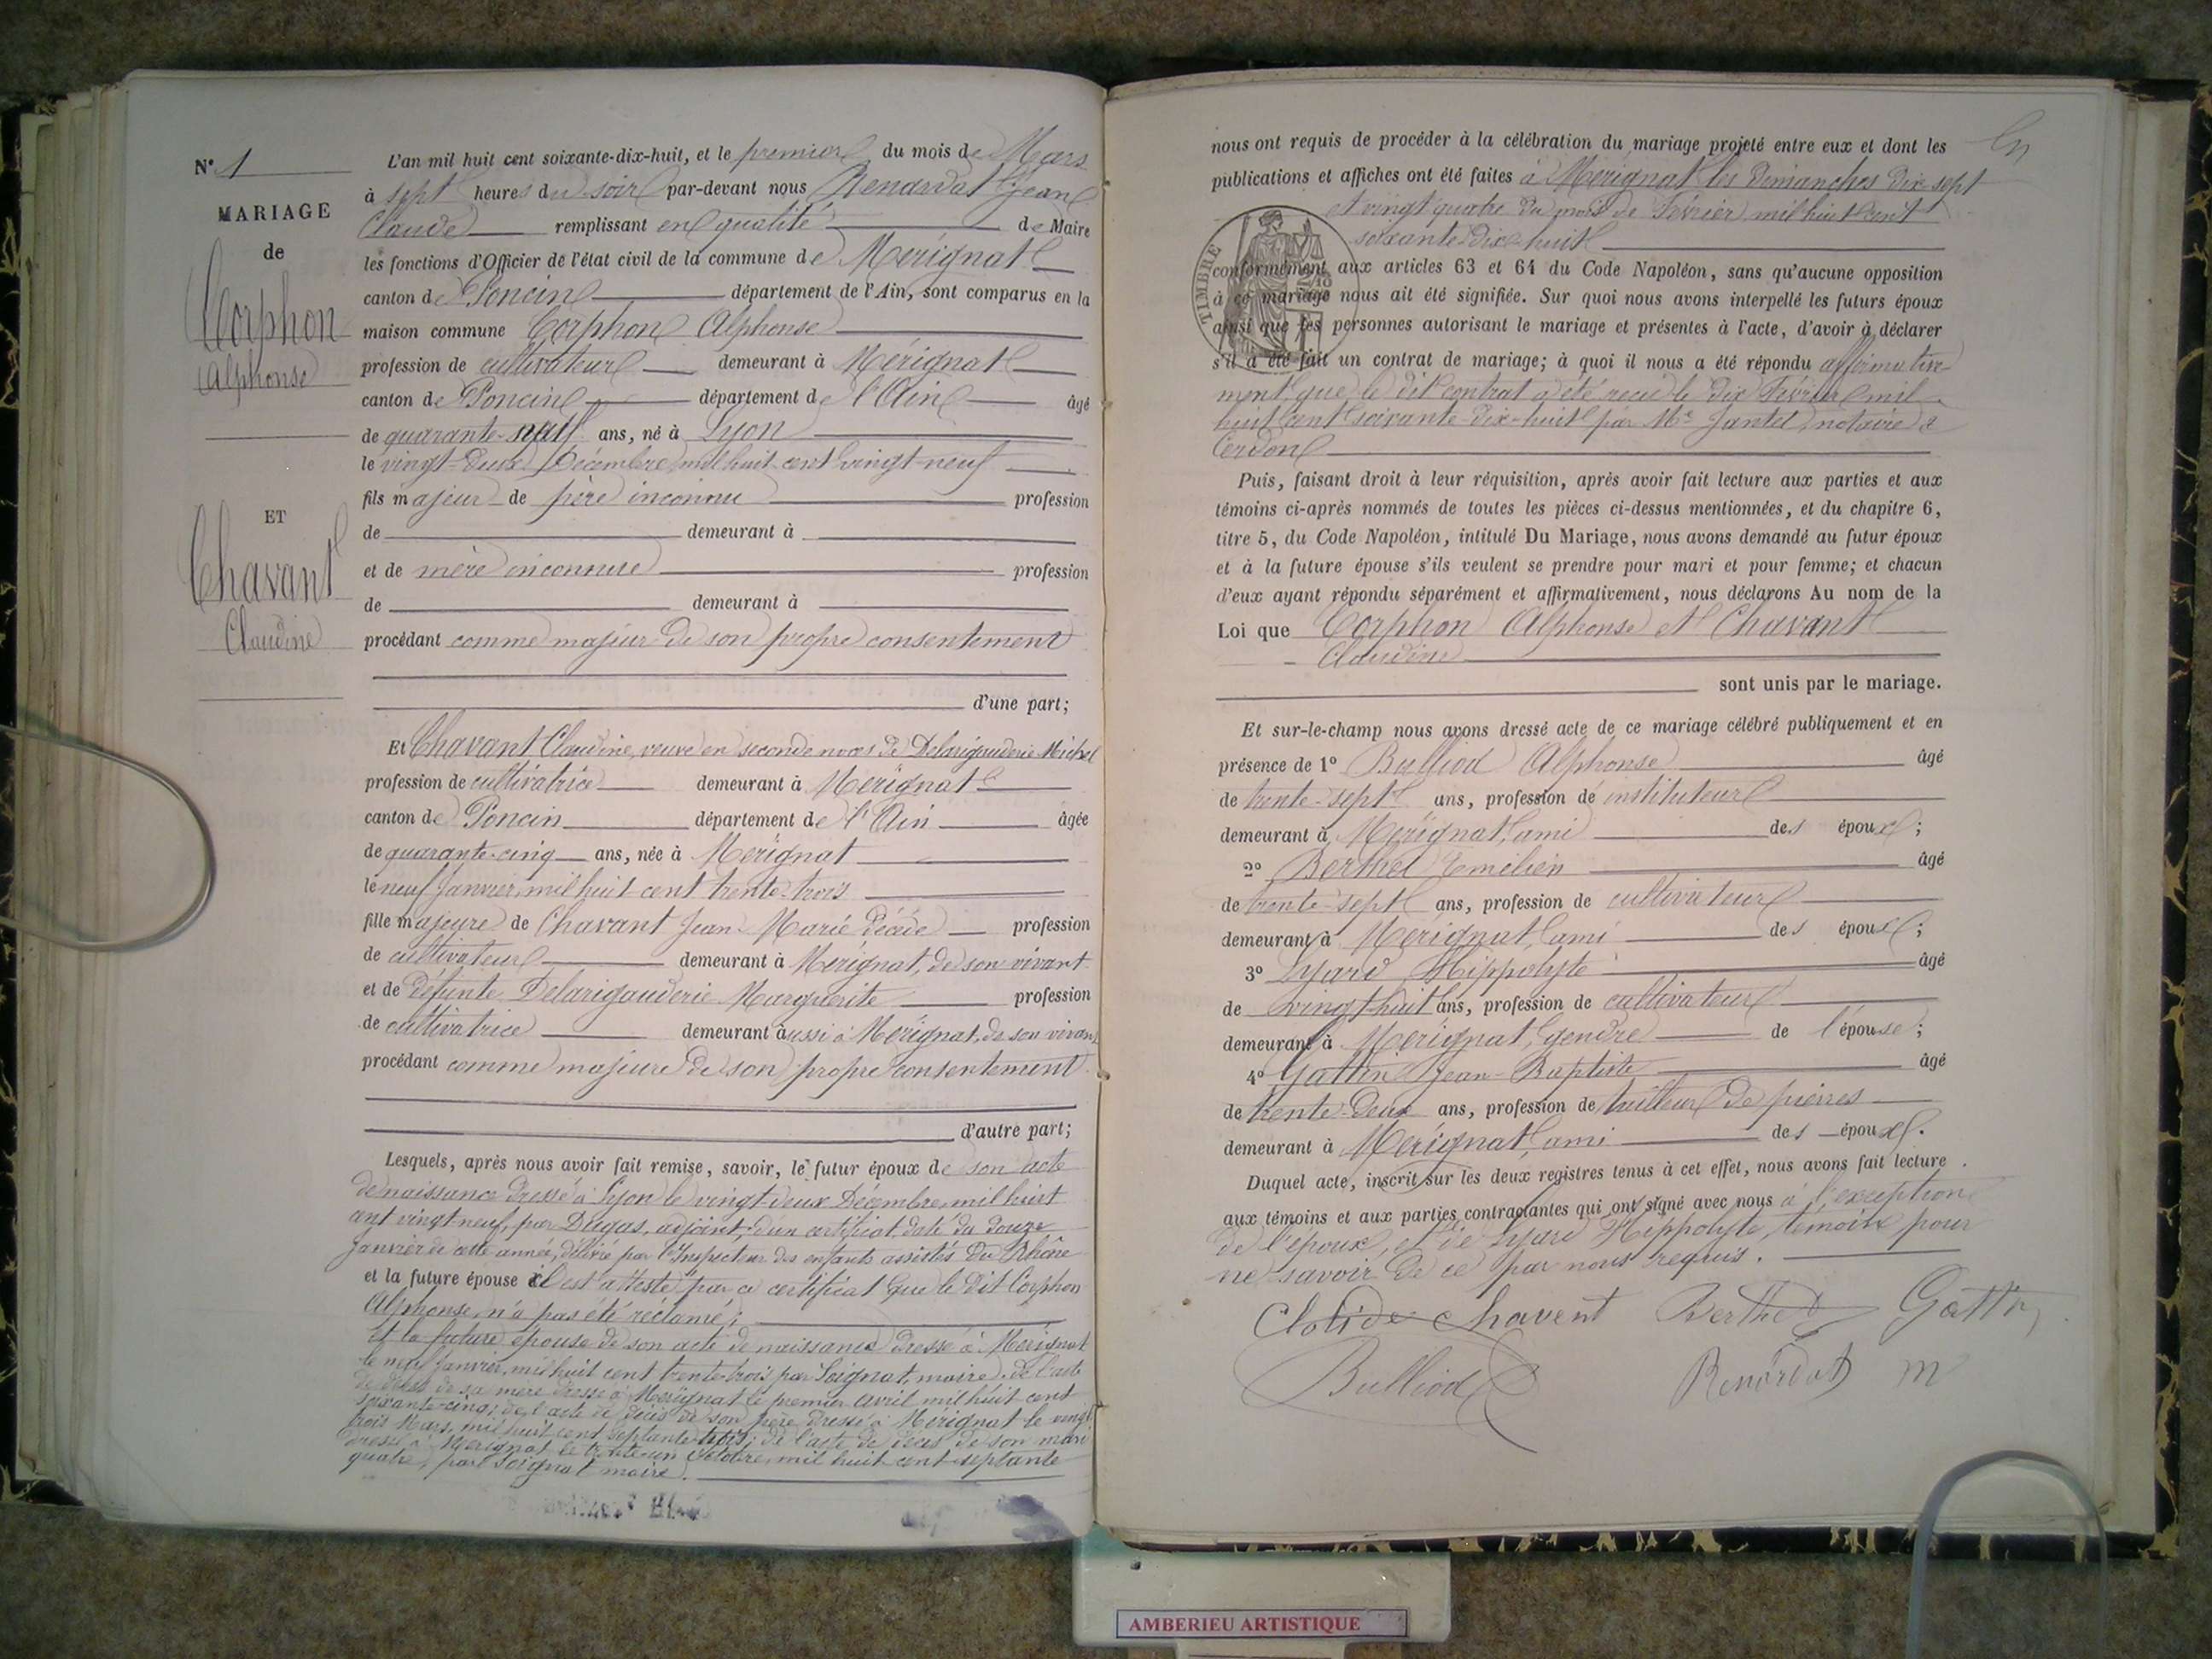 N° 1
MARIAGE
de
Corphon
Alphonse
ET
Chavant
Claudine
L'an mil huit cent soixante-dix-huit, et le premier du mois de Mars
à sept heures du soir par-devant nous Renardat Jean
Claude remplissant en qualité de Maire
les fonctions d'Officier de l'état civil de la commune de Mérignat
canton de Poncin département de l'Ain, sont comparus en la
maison commune Corphon Alphonse
profession de cultivateur demeurant à Mérignat
canton de Poncin département de l'Ain âgé
de quarante-neuf ans, né à Lyon
le vingt-deux Décembre mil huit cent vingt-neuf
fils majeur de père inconnu profession
de demeurant à
et de mère inconnue profession
de demeurant à
procédant comme majeur de son propre consentement
d'une part;
Et Chavant Claudine, veuve en seconde noces de Delarigauderie Michel
profession de cultivatrice demeurant à Mérignat
canton de Poncin département de l'Ain âgée
de quarante-cinq ans, née à Mérignat
le neuf Janvier mil huit cent trente-trois
fille majeure de Chavant Jean-Marie décédé profession
de cultivateur demeurant à Mérignat, de son vivant
et de défunte Delarigauderie Marguerite profession
de cultivatrice demeurant aussi à Mérignat, de son vivant
procédant comme majeure de son propre consentement
d'autre part;
Lesquels, après nous avoir fait remise, savoir, le futur époux de son acte
de naissance dressé à Lyon le vingt-deux Décembre, mil huit
cent vingt neuf, par Dugas, adjoint; d'un certificat daté du douze
Janvier de cette année, délivré par l'Inspecteur des enfants assistés du Rhône
et la future épouse il est attesté par ce certificat que le dit Corphon
Alphonse, n'a pas été réclamé;
Et la future épouse de son acte de naissance dressé à Mérignat
le neuf Janvier, mil huit cent trente-trois par Soignat, maire; de l'acte
de décès de sa mère dressé à Mérignat le premier avril mil huit cent
soixante-cinq; de l'acte de décès de son père dressé à Mérignat le vingt
trois Mars, mil huit cent septante-trois; de l'acte de décès de son mari
dressé à Mérignat le trente-un Octobre, mil huit cent septante
quatre, par Soignat maire.
nous ont requis de procéder à la célébration du mariage projeté entre eux et dont les
publications et affiches ont été faites à Mérignat les Dimanches dix-sept
et vingt quatre du mois de Février mil huit cent
soixante dix-huit
TIMBRE
conformément aux articles 63 et 64 du Code Napoléon, sans qu'aucune opposition
à ce mariage nous ait été signifiée. Sur quoi nous avons interpellé les futurs époux
ainsi que les personnes autorisant le mariage et présentes à l'acte, d'avoir à déclarer
s'il a été fait un contrat de mariage; à quoi il nous a été répondu affirmative-
ment que le dit contrat a été reçu le dix Février mil
huit cent soixante-dix-huit par Me Jantet, notaire à
Cerdon
Puis, faisant droit à leur réquisition, après avoir fait lecture aux parties et aux
témoins ci-après nommés de toutes les pièces ci-dessus mentionnées, et du chapitre 6,
titre 5, du Code Napoléon, intitulé Du Mariage, nous avons demandé au futur époux
et à la future épouse s'ils veulent se prendre pour mari et pour femme; et chacun
d'eux ayant répondu séparément et affirmativement, nous déclarons Au nom de la
Loi que Corphon Alphonse et Chavant
Claudine
sont unis par le mariage.
Et sur-le-champ nous avons dressé acte de ce mariage célébré publiquement et en
présence de 1° Bulliod Alphonse âgé
de trente-sept ans, profession de instituteur
demeurant à Mérignat, ami des époux;
2° Berthet Emélien âgé
de trente-sept ans, profession de cultivateur
demeurant à Mérignat, ami des époux;
3° Lyard Hippolyte âgé
de vingt-huit ans, profession de cultivateur
demeurant à Mérignat, gendre de l'épouse;
4° Gattin Jean-Baptiste âgé
de trente-deux ans, profession de tailleur de pierres
demeurant à Mérignat, ami des époux.
Duquel acte, inscrit sur les deux registres tenus à cet effet, nous avons fait lecture
aux témoins et aux parties contractantes qui ont signé avec nous à l'exception
de l'époux, et de Lyard Hippolyte, témoin pour
ne savoir de ce par nous requis.
Clotide Chavent Berthet Gattin
Bulliod Renardat m
AMBERIEU ARTISTIQUE